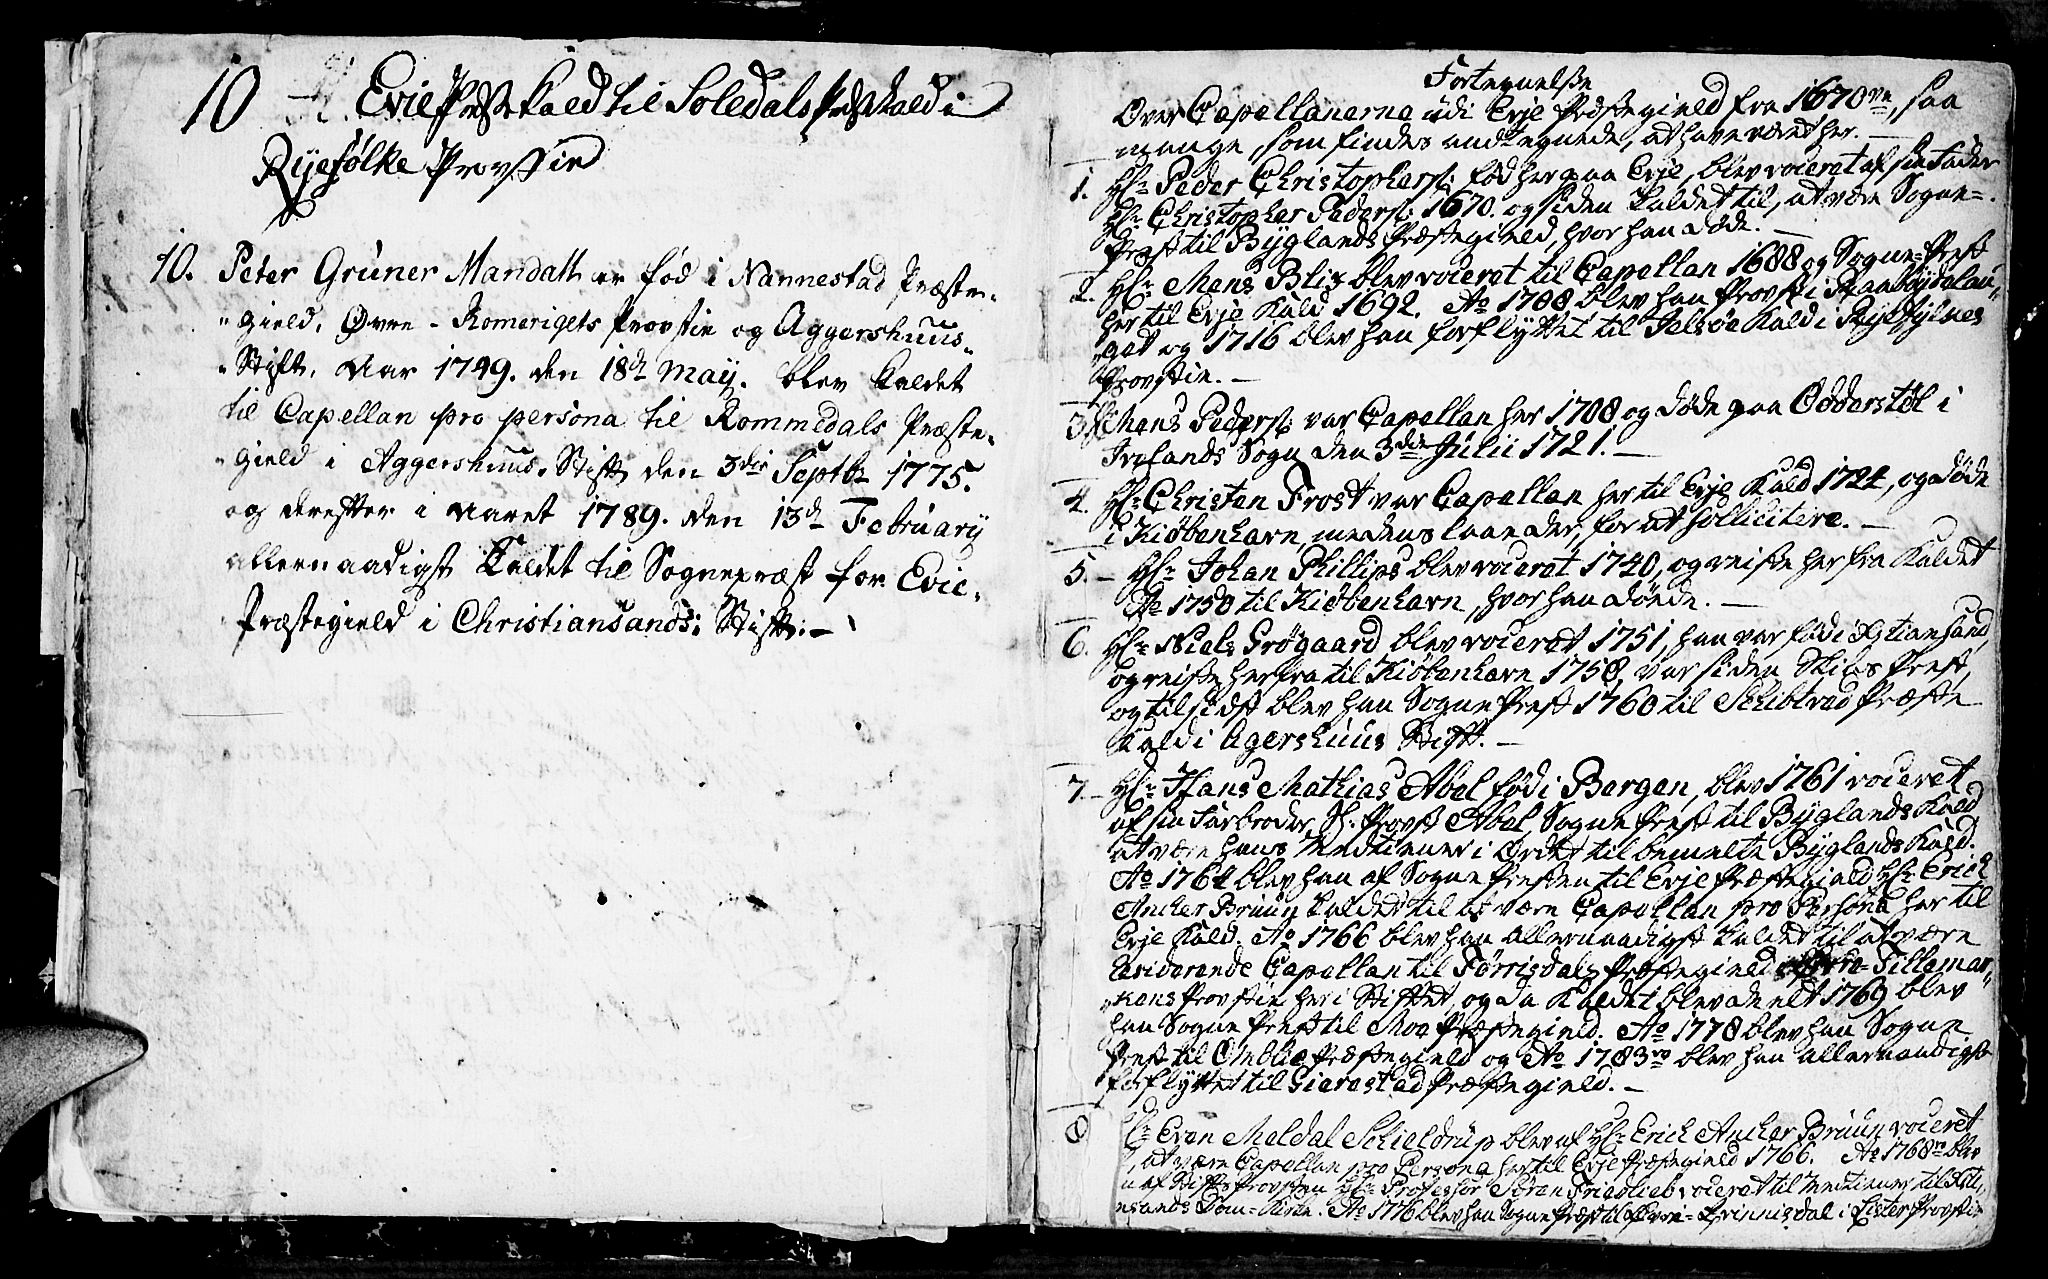 10 Evie Præste Kald til Soledals Præste Kald i
Ryefölke Provstie
10. Peter Grüner Mandall er fød i Nannestad Præste-
gield, Øvre-Romerigets Provstie og Aggershuus-
Stift, Aar 1749. den 18de Maÿ. blev kaldet
til Capellan pro persona til Rommedals Præste-
gield i Aggershuus Stift den 3die Septbr 1775.
og derefter i Aaret 1789. den 13de Februarÿ
allernaadigst kaldet til Sognepræst for Evie-
Præstegield i Christiansands Stift.
Fortegnelse
Over Capellanerne udi Evje Præstegield fra 1670ve, saa
mange, som findes andtegnede, at have været her.
1. Hr. Peder Christophers: fød her paa Evje, blev voceret af sin Fader
Hr. Christopher Peders: 1670. og siden kaldet til, at være Sogne-
Præst til Bÿglands Præstegield, hvor han døde.
2. Hr. Mons Blix blev voceret til Capellan 1688 og Sogne-Præst
her til Evje Kald 1692. Ao 1708 blev han Provst i Raabÿgdelau-
get og 1716 blev han forflÿttet til Jelsøe Kald i Rÿefÿlkes
Provstie.
3. Mons Peders: var Capellan her 1708 og døde paa Odderstøl i
Ivelands Sogn den 3die Julii 1721.
4. Hr. Christen Frost var Capellan her til Evje Kald 1724, og døde
i Kiøbenhavn, medens laae der, for at sollicitere.
5. Hr. Johan Phillips blev voceret 1740, og reiste her fra Kaldet
Ao 1750 til Kiøbenhavn, hvor han døede.
6. Hr. Niels Grøgaard blev voceret 1751, han var fød i Xstiansand,
og reiste herfra til Kiøbenhavn 1758, var siden Skibs Præst,
og til sidst blev han Sogne Præst 1760 til Schibtved Præste
Kald i Agershuus Stift.
7. Hr. Hans Mathias Abel fød i Bergen, blev 1761 voceret
af sin Farbroder, Sl. Provst Abel, Sogne Præst til Bÿglands Kald
at være hans Medtiener i Ordet til bemelte Bÿglands Kald.
Ao 1764 blev han af Sogne Præsten til Evje Præstegield Hr. Erich
Ancher Bruun kaldet til at være Capellan pro Persona her til
Evje Kald. Ao 1766 blev han Allernaadigst kaldet til at være
residerende Capellan til Førrisdals Præstegield Tillemar-
kens Provstie her i Stiftet, og da Kaldet blev deelt 1769 blev
han Sogne Præst til Moe Præstegield. Ao 1778 blev han Sogne
Præst til Omblie Præstegield og Ao 1783 blev han allernaadigst
forflÿttet til Gierestad Præstegield.
8 Hr. Even Meldal Schieldrup blev af Hr. Erich Ancher Bruun voceret
at være Capellan pro Persona her til Evje Præstegield 1766. Ao 1768 blev
af Stifts Provsten Hr. Professor Søren Friedlieb voceret til Medtiener til Xsti-
ansands Dom-Kirke. Ao 1776 blev han Sogne Præst til Qvinnisdal i Lister Provstie